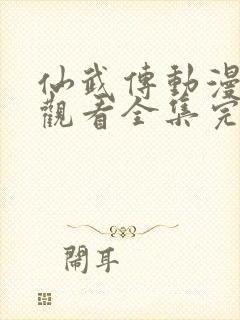 仙武傳動漫
觀看全集完
鬧耳